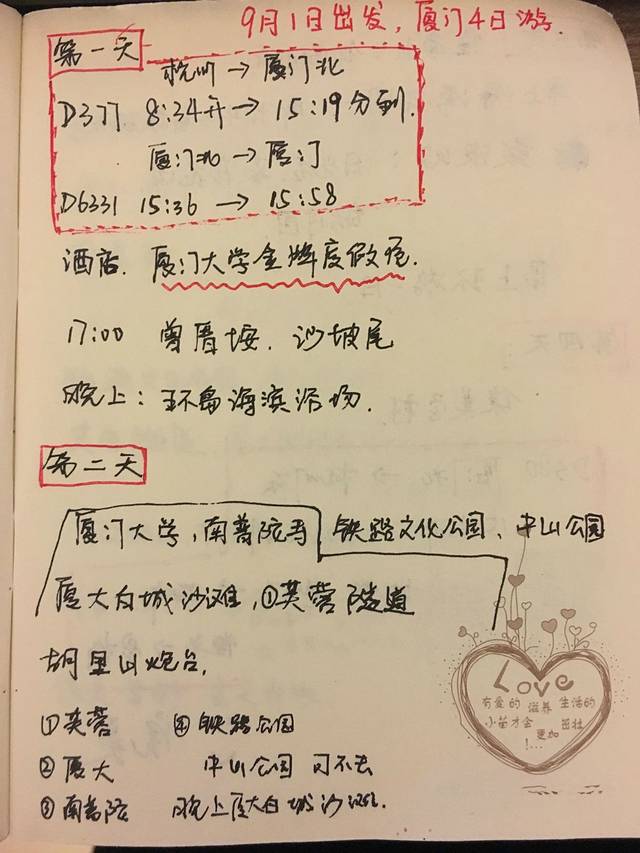 9月1日出发，厦门4日游.
第一天
杭州→厦门北
D377 8:34开→15:19分到.
厦门北→厦门
D6331 15:36→15:58
酒店. 厦门大学金牌度假屋.
17:00 曾厝垵. 沙坡尾
晚上：环岛海滨浴场.
第二天
厦门大学，南普陀寺 铁路文化公园、中山公园
厦大白城沙滩，①芙蓉隧道
胡里山炮台，
①芙蓉 ④铁路公园
②厦大 中山公园 可不去
③南普陀 晚上厦大白城沙滩.
Love
有爱的 滋养 生活的
小苗才会 更加 茁壮
!...